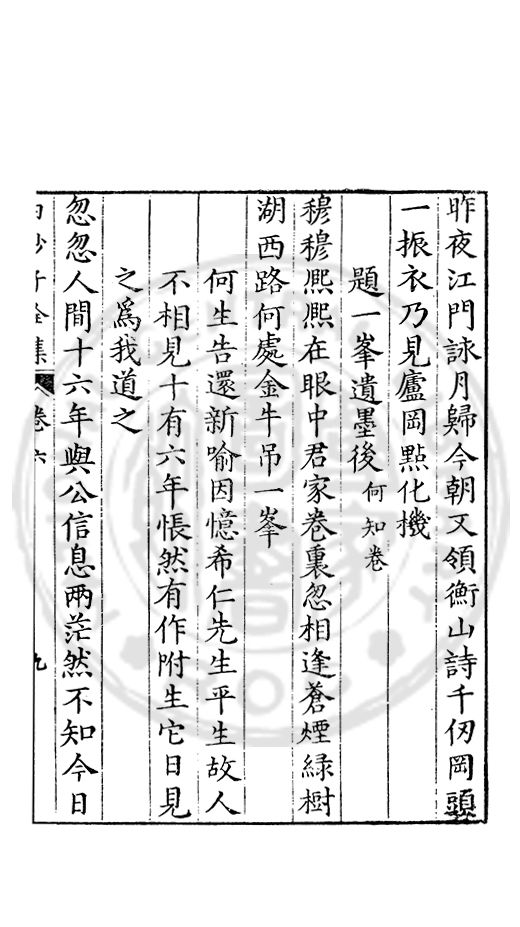 昨夜江門詠月歸今朝又領衡山詩千仞岡頭
一振衣乃見廬岡㸃化機
題一峯遺墨後何知卷
穆穆熈熈在眼中君家卷裏忽相逢蒼煙緑樹
湖西路何處金牛吊一峯
何生告還新喻因憶希仁先生平生故人
不相見十有六年悵然有作附生它日見
之爲我道之
忽忽人間十六年與公信息兩茫然不知今日
子全集 卷六 九